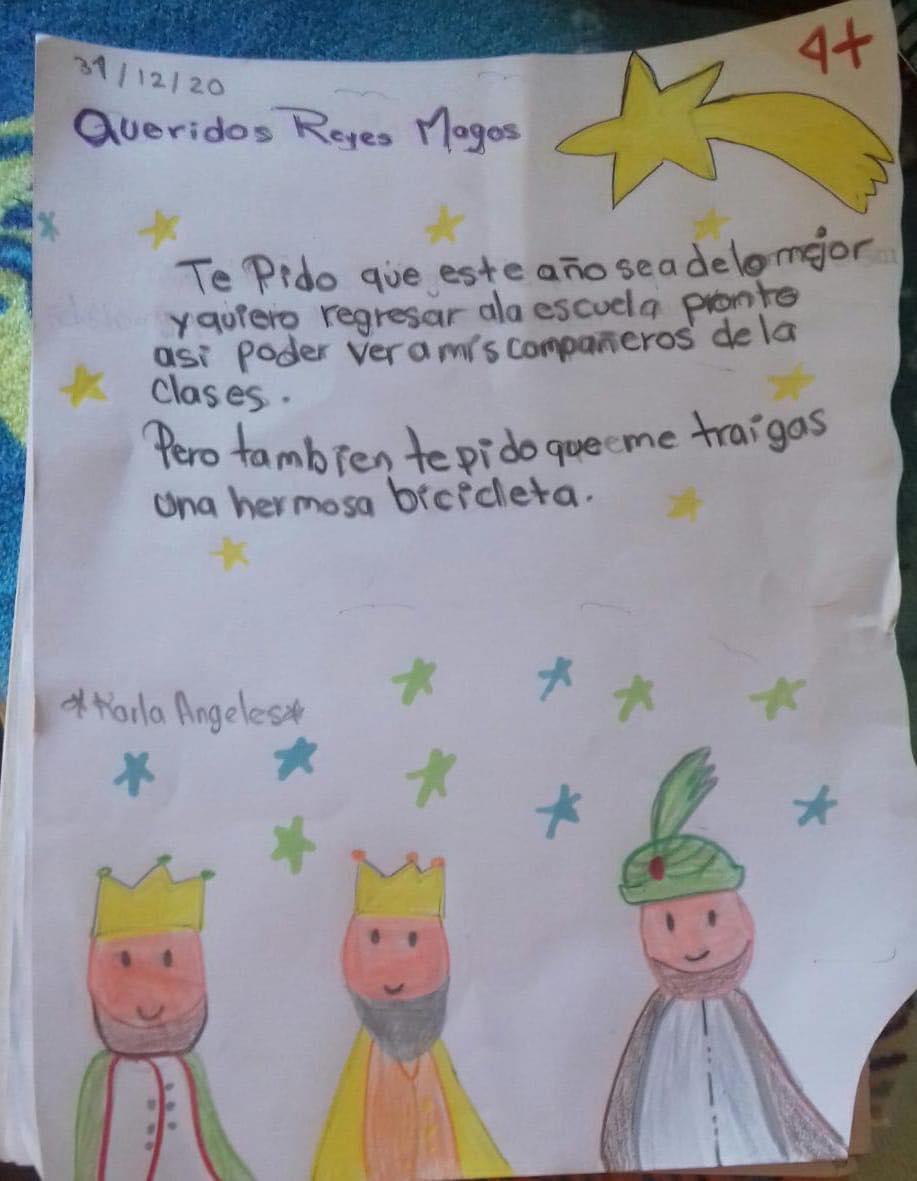 31/12/20
4+
Queridos Reyes Magos
Te Pido que este año sea de lo mejor
y quiero regresar ala escuela pronto
asi poder ver a mis compañeros de la
clases.
Pero tambien te pido que me traigas
una hermosa bicicleta.
*Karla Angeles*